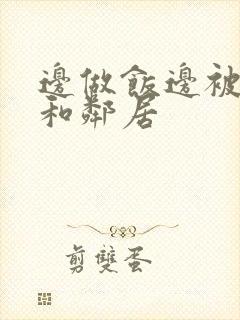 邊做飯邊被
和鄰居
剪雙蛋